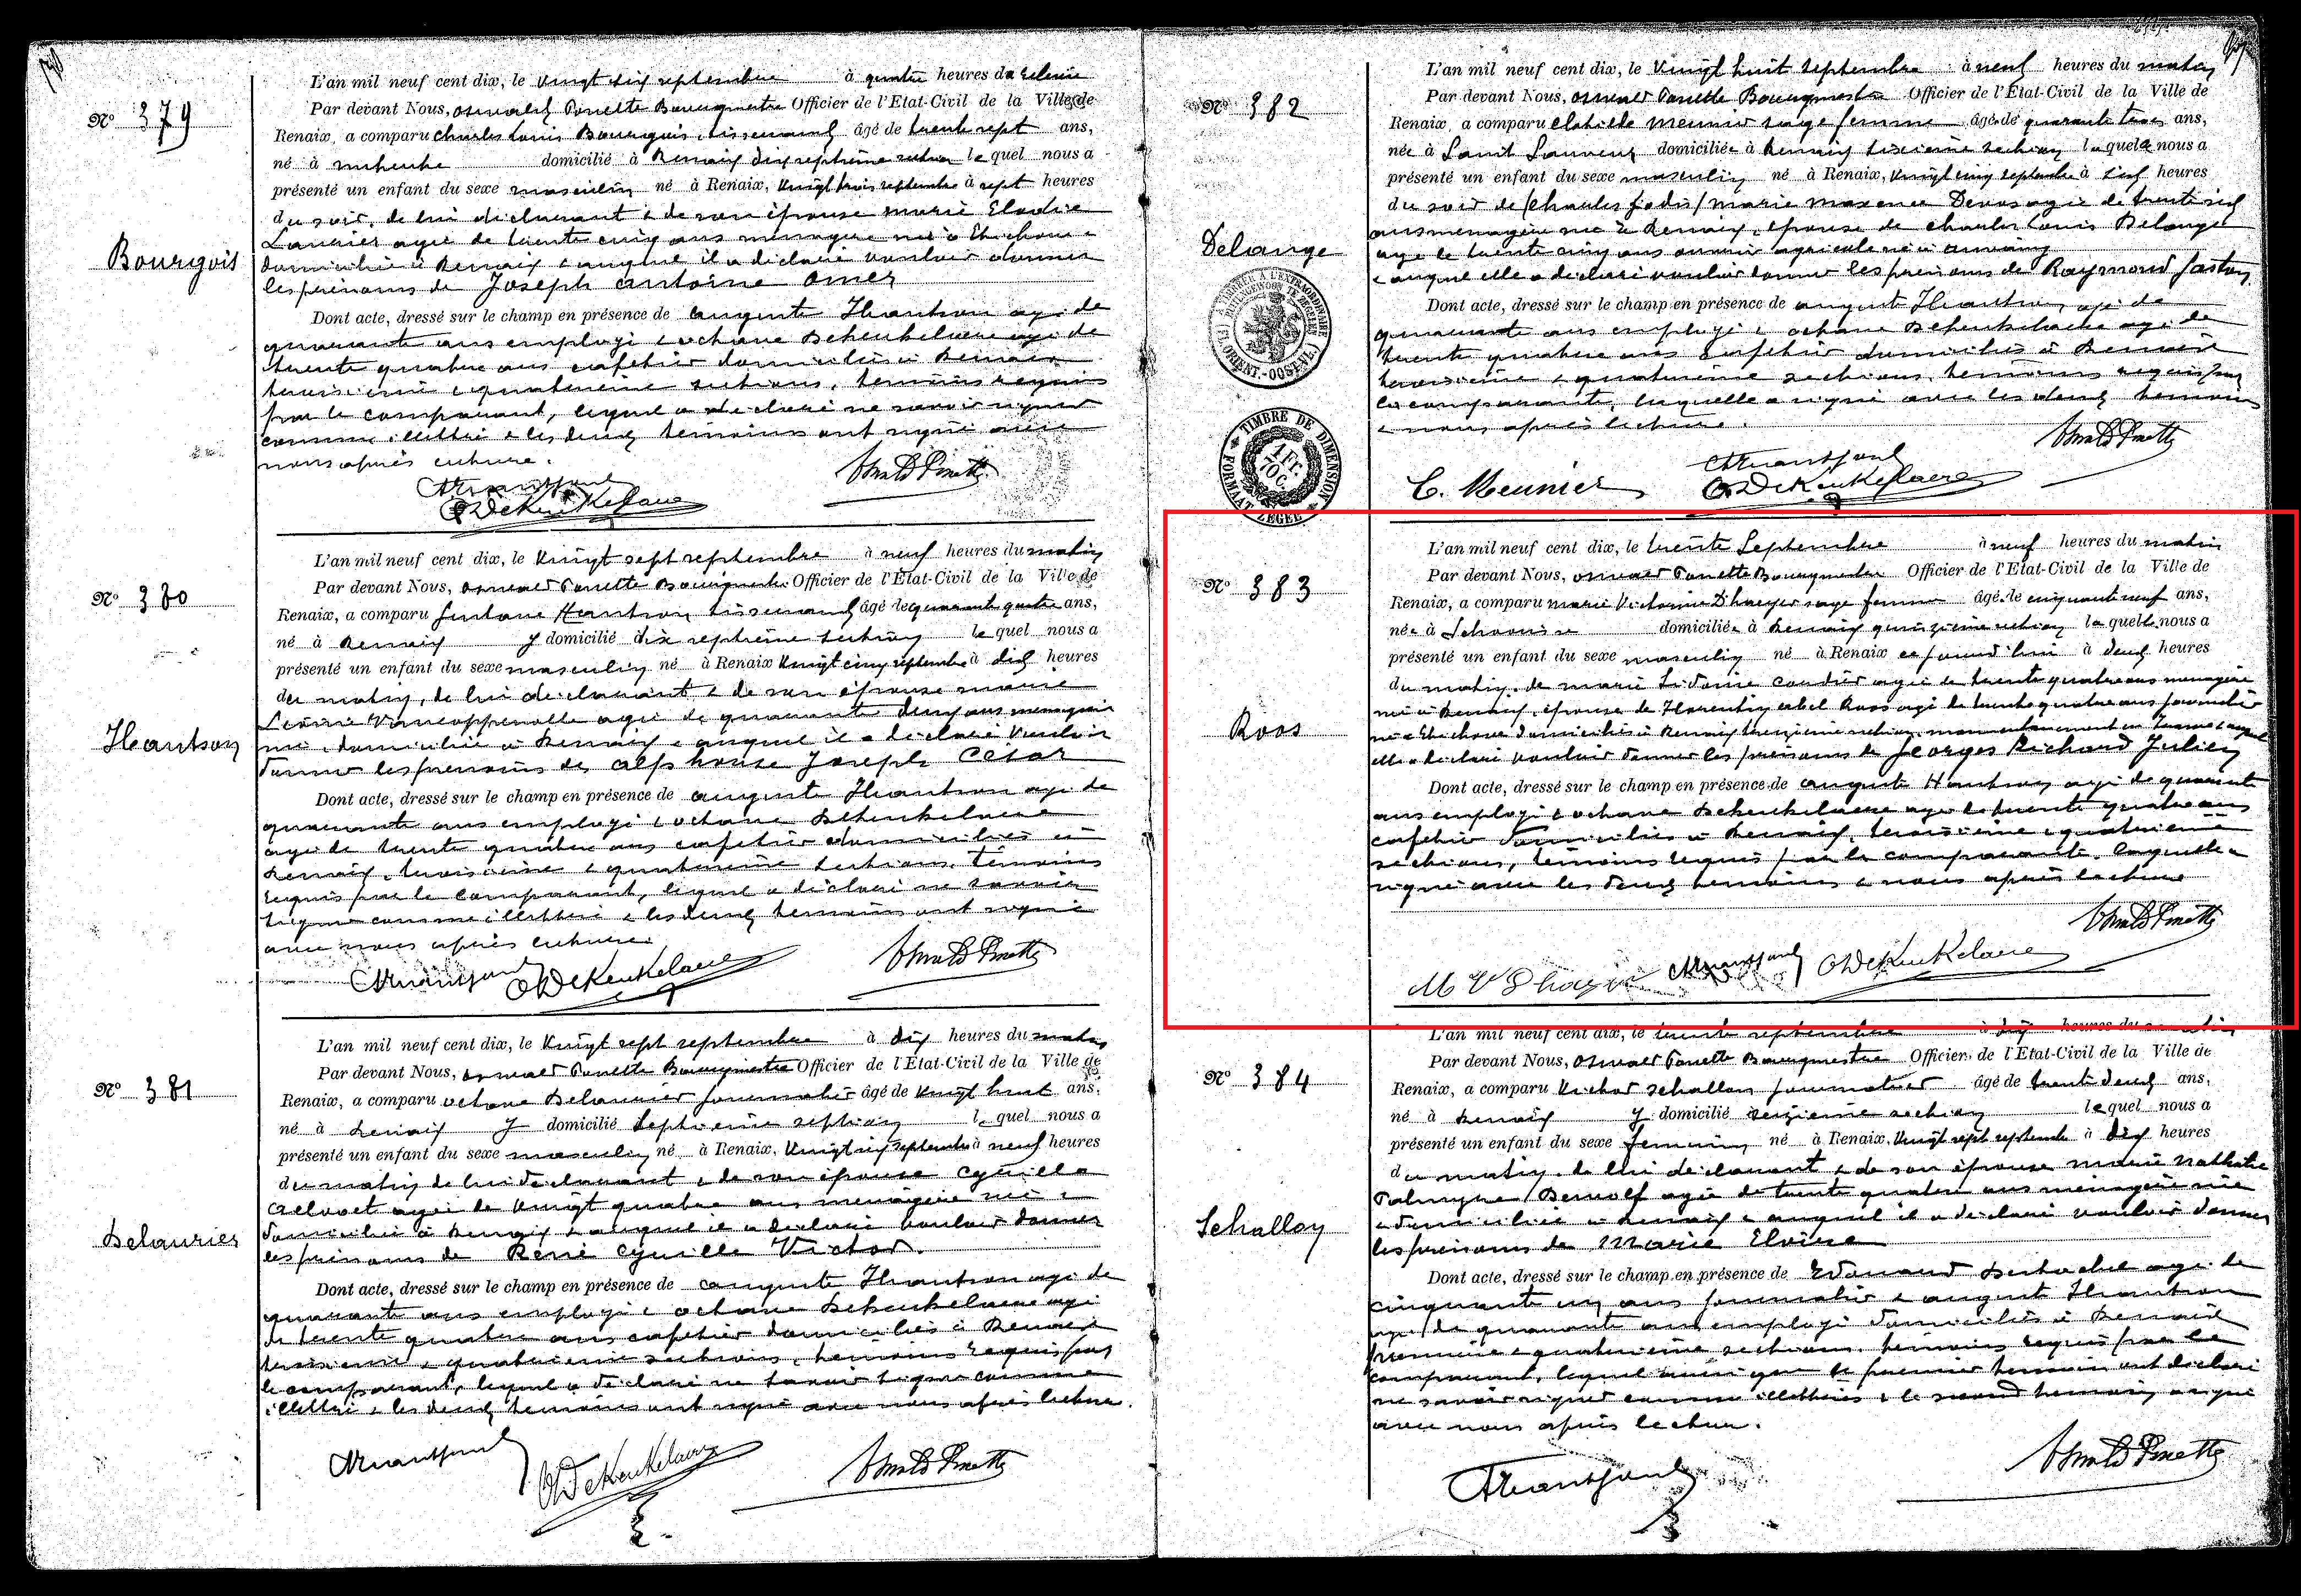 Nº 379
Bourgois
L'an mil neuf cent dix, le vingt six septembre à quatre heures de relevée
Par devant Nous, Oswald Ponette Bourgmestre Officier de l'Etat-Civil de la Ville de
Renaix, a comparu Charles Louis Bourgois, tisserand âgé de trente sept ans,
né à domicilié à Renaix dix septième section lequel nous a
présenté un enfant du sexe masculin né à Renaix, vingt trois septembre à sept heures
du soir, de lui déclarant & de son épouse Marie Elodie
agée de trente cinq ans ménagère née à Etichove &
domiciliée à Renaix & auquel il a déclaré vouloir donner
les prénoms de Joseph Antoine Omer
Dont acte, dressé sur le champ en présence de Auguste Hantson agé de
quarante ans employé & Octave Dekeukelaere agé de
trente quatre ans cafetier domiciliés à Renaix
troisième & quatrième sections, témoins requis
par le comparant, lequel a déclaré ne savoir signer
comme illettré & les deux témoins ont signé avec
nous après lecture.
Nº 380
Hantson
L'an mil neuf cent dix, le vingt sept septembre à neuf heures du matin
Par devant Nous, Oswald Ponette Bourgmestre Officier de l'Etat-Civil de la Ville de
Renaix, a comparu Hantson tisserand âgé de quarante quatre ans,
né à Renaix y domicilié dix septième section lequel nous a
présenté un enfant du sexe masculin né à Renaix vingt cinq septembre à dix heures
du matin, de lui déclarant & de son épouse Marie
agée de quarante deux ans ménagère
née & domiciliée à Renaix & auquel il a déclaré vouloir
donner les prénoms de Alphonse Joseph César
Dont acte, dressé sur le champ en présence de Auguste Hantson agé de
quarante ans employé & Octave Dekeukelaere
agé de trente quatre ans cafetier domiciliés à
Renaix, troisième & quatrième sections, témoins
requis par le comparant, lequel a déclaré ne savoir
signer comme illettré & les deux témoins ont signé
avec nous après lecture.
Nº 381
Delaunier
L'an mil neuf cent dix, le vingt sept septembre à dix heures du matin
Par devant Nous, Oswald Ponette Bourgmestre Officier de l'Etat-Civil de la Ville de
Renaix, a comparu Octave Delaunier journalier âgé de vingt huit ans,
né à Renaix y domicilié septième section lequel nous a
présenté un enfant du sexe masculin né à Renaix, vingt six septembre à neuf heures
du matin de lui déclarant & de son épouse Cyrille
agée de vingt quatre ans ménagère née &
domiciliée à Renaix & auquel il a déclaré vouloir donner
les prénoms de René Cyrille Victor.
Dont acte, dressé sur le champ en présence de Auguste Hantson agé de
quarante ans employé & Octave Dekeukelaere agé
de trente quatre ans cafetier domiciliés à Renaix
troisième & quatrième sections, témoins requis par
le comparant, lequel a déclaré ne savoir signer comme
illettré & les deux témoins ont signé avec nous après lecture.
Nº 382
Delange
L'an mil neuf cent dix, le vingt huit septembre à neuf heures du matin
Par devant Nous, Oswald Ponette Bourgmestre Officier de l'Etat-Civil de la Ville de
Renaix, a comparu Clotilde Meunier sage femme âgée de quarante trois ans,
née à Saint Sauveur domiciliée à Renaix section laquelle nous a
présenté un enfant du sexe masculin né à Renaix, vingt cinq septembre à six heures
du soir de Marie Maxence Devos agée de trente six
ans ménagère née à Renaix, épouse de Charles Louis Delange
agé de trente cinq ans ouvrier agricole né à
& auquel elle a déclaré vouloir donner les prénoms de Raymond Gaston
Dont acte, dressé sur le champ en présence de Auguste Hantson, agé de
quarante ans employé & Octave Dekeukelaere agé de
trente quatre ans cafetier domiciliés à Renaix
troisième & quatrième sections, témoins requis par
la comparante, laquelle a signé avec les deux témoins
& nous après lecture.
C. Meunier
TIMBRE DE DIMENSION
1 Fr. 70 c.
FORMAAT ZEGEL
Nº 383
Roos
L'an mil neuf cent dix, le trente Septembre à neuf heures du matin
Par devant Nous, Oswald Ponette Bourgmestre Officier de l'Etat-Civil de la Ville de
Renaix, a comparu Marie Victorine D'haeyer sage femme âgée de cinquante neuf ans,
née à Schoorisse domiciliée à Renaix quinzième section laquelle nous a
présenté un enfant du sexe masculin né à Renaix ce jourd'hui à deux heures
du matin, de Marie Sidonie agée de trente quatre ans ménagère
née à Renaix, épouse de Florentin Abel Roos agé de trente quatre ans journalier
né à Etichove domiciliés à Renaix treizième section, momentanément en France & auquel
elle a déclaré vouloir donner les prénoms de Georges Richard Julien
Dont acte, dressé sur le champ en présence de Auguste Hantson agé de quarante
ans employé & Octave Dekeukelaere agé de trente quatre ans
cafetier domiciliés à Renaix, troisième & quatrième
sections, témoins requis par la comparante, laquelle a
signé avec les deux témoins & nous après lecture
Nº 384
Schallon
L'an mil neuf cent dix, le trente septembre à dix heures du matin
Par devant Nous, Oswald Ponette Bourgmestre Officier de l'Etat-Civil de la Ville de
Renaix, a comparu Victor Schallon journalier âgé de trente deux ans,
né à Renaix y domicilié section lequel nous a
présenté un enfant du sexe féminin né à Renaix, vingt sept septembre à dix heures
du matin, de lui déclarant & de son épouse Marie Nathalie
Palmyre agée de trente quatre ans ménagère née
& domiciliée à Renaix & auquel il a déclaré vouloir donner
les prénoms de Marie Elvire
Dont acte, dressé sur le champ en présence de Edouard agé de
cinquante un ans journalier & August Hantson
agé de quarante ans employé domiciliés à Renaix
première & quatrième sections, témoins requis par le
comparant, lequel ainsi que le premier témoin ont déclaré
ne savoir signer comme illettrés & le second témoin a signé
avec nous après lecture.